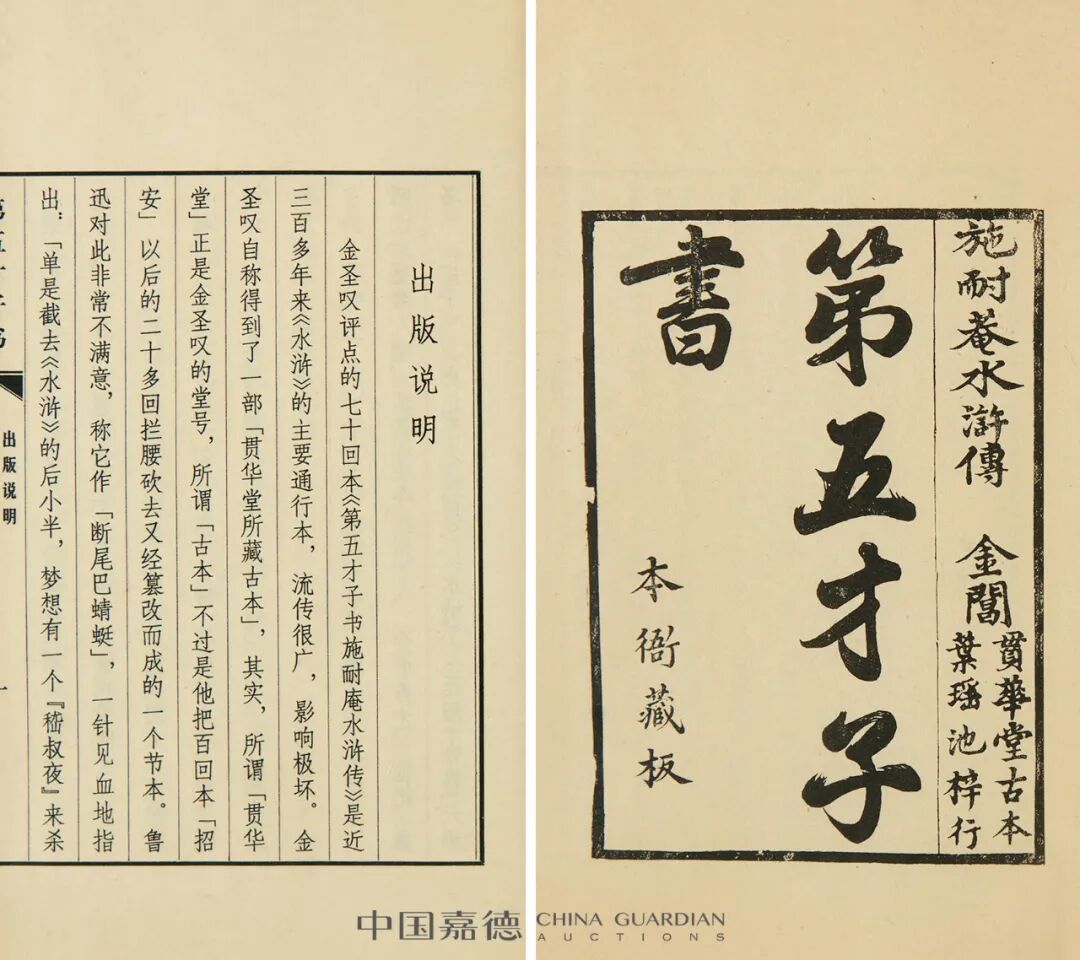 出版说明
金圣叹评点的七十回本《第五才子书施耐庵水浒传》是近
三百多年来《水浒》的主要通行本，流传很广，影响极坏。金
圣叹自称得到了一部「贯华堂所藏古本」，其实，所谓「贯华
堂」正是金圣叹的堂号，所谓「古本」不过是他把百回本「招
安」以后的二十多回拦腰砍去又经篡改而成的一个节本。鲁
迅对此非常不满意，称它作「断尾巴蜻蜓」，一针见血地指
出：「单是截去《水浒》的后小半，梦想有一个『嵇叔夜』来杀
第五才子书
出版说明
一
施耐菴水滸傳 金閶
貫華堂古本
葉瑶池梓行
第五才子
書
本衙藏板
中国嘉德 CHINA GUARDIAN
AUCTIONS